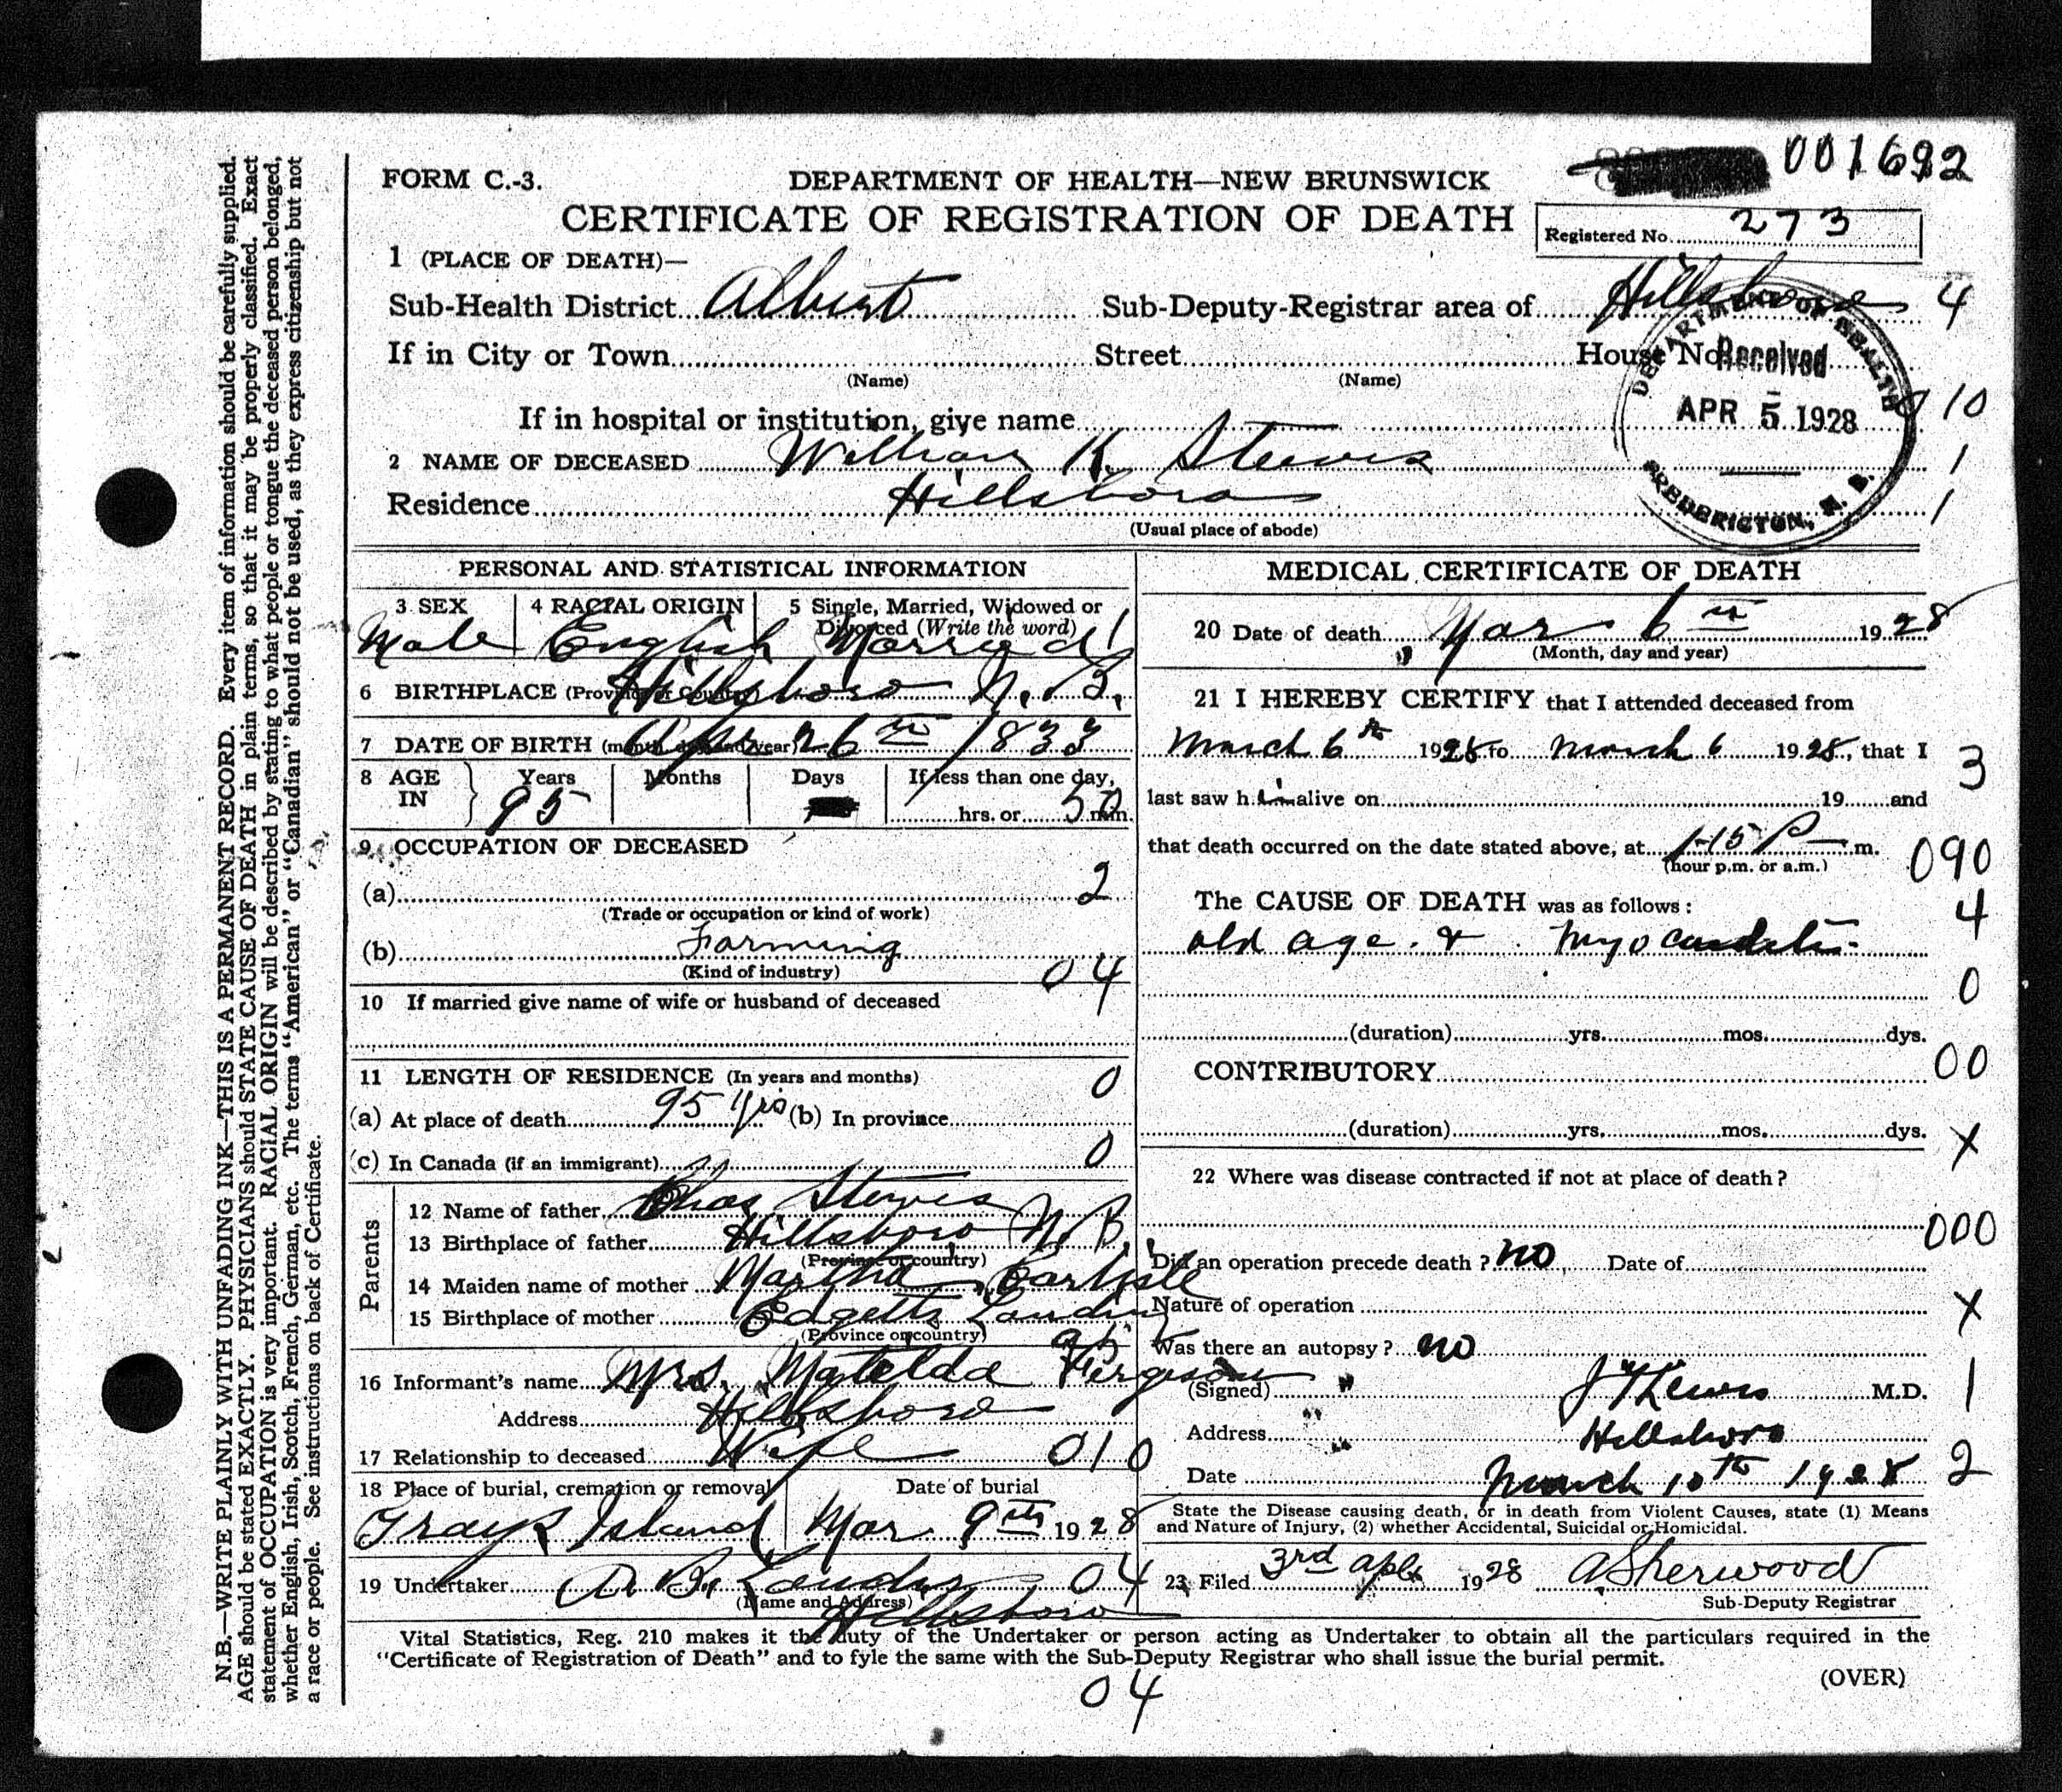 001692
FORM C.-3.
DEPARTMENT OF HEALTH—NEW BRUNSWICK
CERTIFICATE OF REGISTRATION OF DEATH
Registered No. 273
1 (PLACE OF DEATH)—
Sub-Health District Albert Sub-Deputy-Registrar area of Hillsboro 4
If in City or Town Street House No.
(Name) (Name)
DEPARTMENT OF HEALTH
Received
APR 5 1928
FREDERICTON, N. B.
10
If in hospital or institution, give name
2 NAME OF DECEASED William K. Steeves 1
Residence Hillsboro 1
(Usual place of abode)
PERSONAL AND STATISTICAL INFORMATION
3 SEX 4 RACIAL ORIGIN 5 Single, Married, Widowed or
Divorced (Write the word)
Male English Married 1
6 BIRTHPLACE (Province or Country) Hillsboro N. B.
7 DATE OF BIRTH (month, day and year) Apr 26th 1833
8 AGE IN Years Months Days If less than one day,
95 hrs. or 50 min.
9 OCCUPATION OF DECEASED
(a) 2
(Trade or occupation or kind of work)
(b) Farming
(Kind of industry) 04
10 If married give name of wife or husband of deceased
11 LENGTH OF RESIDENCE (In years and months) 0
(a) At place of death 95 yrs (b) In province
(c) In Canada (if an immigrant) 0
Parents
12 Name of father Chas Steeves
13 Birthplace of father Hillsboro N. B.
(Province or country)
14 Maiden name of mother Martha Carlisle
15 Birthplace of mother Edgetts Landing
(Province or country)
16 Informant's name Mrs. Matelda Fergeson
Address Hillsboro
17 Relationship to deceased Wife 010
18 Place of burial, cremation or removal Date of burial
Grays Island Mar 9th 1928
19 Undertaker A B. Lauder 04
(Name and Address)
Hillsboro
MEDICAL CERTIFICATE OF DEATH
20 Date of death Mar 6th 1928
(Month, day and year)
21 I HEREBY CERTIFY that I attended deceased from
March 6th 1928 to March 6 1928, that I
3
last saw him alive on 19 and
that death occurred on the date stated above, at 1-15 P m.
(hour p.m. or a.m.)
090
The CAUSE OF DEATH was as follows: 4
old age. & Myocarditis
0
(duration) yrs. mos. dys.
CONTRIBUTORY 00
(duration) yrs. mos. dys.
X
22 Where was disease contracted if not at place of death?
000
Did an operation precede death? no Date of
Nature of operation X
Was there an autopsy? no
(Signed) J T Lewis M.D. 1
Address Hillsboro
Date March 10th 1928 2
State the Disease causing death, or in death from Violent Causes, state (1) Means
and Nature of Injury, (2) whether Accidental, Suicidal or Homicidal.
23 Filed 3rd apl 1928 A Sherwood
Sub-Deputy Registrar
Vital Statistics, Reg. 210 makes it the duty of the Undertaker or person acting as Undertaker to obtain all the particulars required in the
"Certificate of Registration of Death" and to fyle the same with the Sub-Deputy Registrar who shall issue the burial permit.
(OVER)
04
N.B.—WRITE PLAINLY WITH UNFADING INK—THIS IS A PERMANENT RECORD. Every item of information should be carefully supplied.
AGE should be stated EXACTLY. PHYSICIANS should STATE CAUSE OF DEATH in plain terms, so that it may be properly classified. Exact
statement of OCCUPATION is very important. RACIAL ORIGIN will be described by stating to what people or tongue the deceased person belonged,
whether English, Irish, Scotch, French, German, etc. The terms "American" or "Canadian" should not be used, as they express citizenship but not
a race or people. See instructions on back of Certificate.